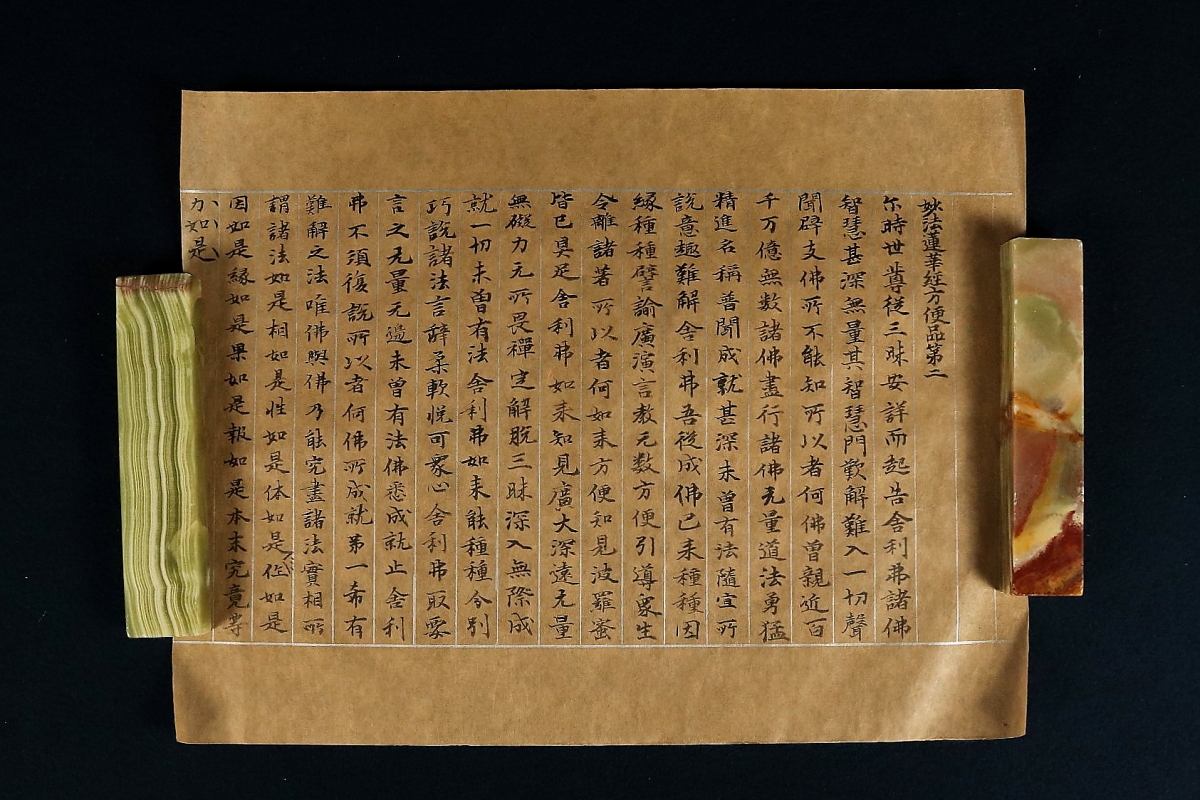 妙法蓮華経方便品第二
尓時世尊従三昧安詳而起告舍利弗諸佛
智慧甚深無量其智慧門難解難入一切聲
聞辟支佛所不能知所以者何佛曽親近百
千万億無数諸佛盡行諸佛无量道法勇猛
精進名稱普聞成就甚深未曽有法隨宜所
説意趣難解舍利弗吾従成佛已来種種因
縁種種譬喻廣演言教无数方便引導衆生
令離諸著所以者何如来方便知見波羅蜜
皆已具足舍利弗如来知見廣大深遠无量
無礙力无所畏禪定解脱三昧深入無際成
就一切未曽有法舍利弗如来能種種分別
巧説諸法言辭柔軟悦可衆心舍利弗取要
言之无量无邊未曽有法佛悉成就止舍利
弗不須復説所以者何佛所成就第一希有
難解之法唯佛與佛乃能究盡諸法實相所
謂諸法如是相如是性如是体如是作如是
因如是縁如是果如是報如是本末究竟等
力如是